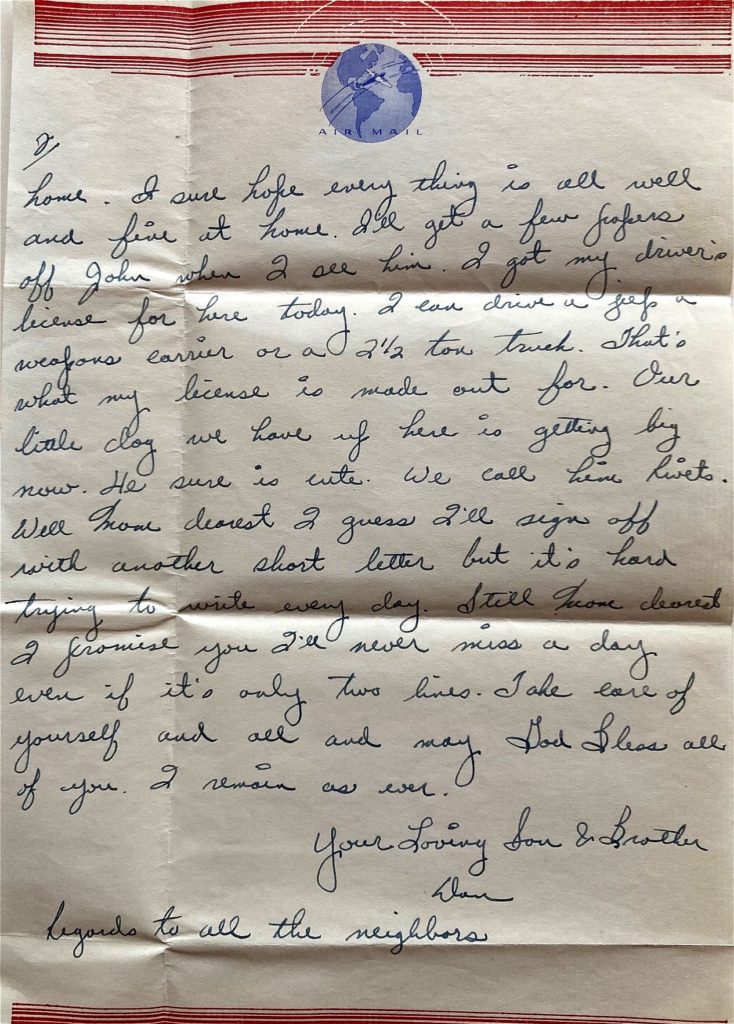 AIR MAIL
2/
home. I sure hope every thing is all well
and fine at home. I'll get a few papers
off John when I see him. I got my driver's
license for here today. I can drive a jeep a
weapons carrier or a 2 1/2 ton truck. That's
what my license is made out for. Our
little dog we have up here is getting big
now. He sure is cute. We call him Rivets.
Well Mom dearest I guess I'll sign off
with another short letter but it's hard
trying to write every day. Still Mom dearest
I promise you I'll never miss a day
even if it's only two lines. Take care of
yourself and all and may God Bless all
of you. I remain as ever.
Your Loving Son & Brother
Dan
Regards to all the neighbors